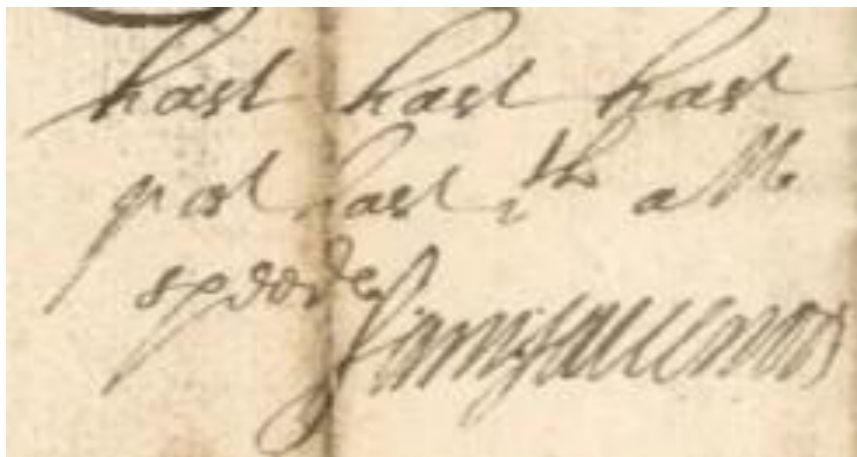 hast hast hast
post hast wth all
speede